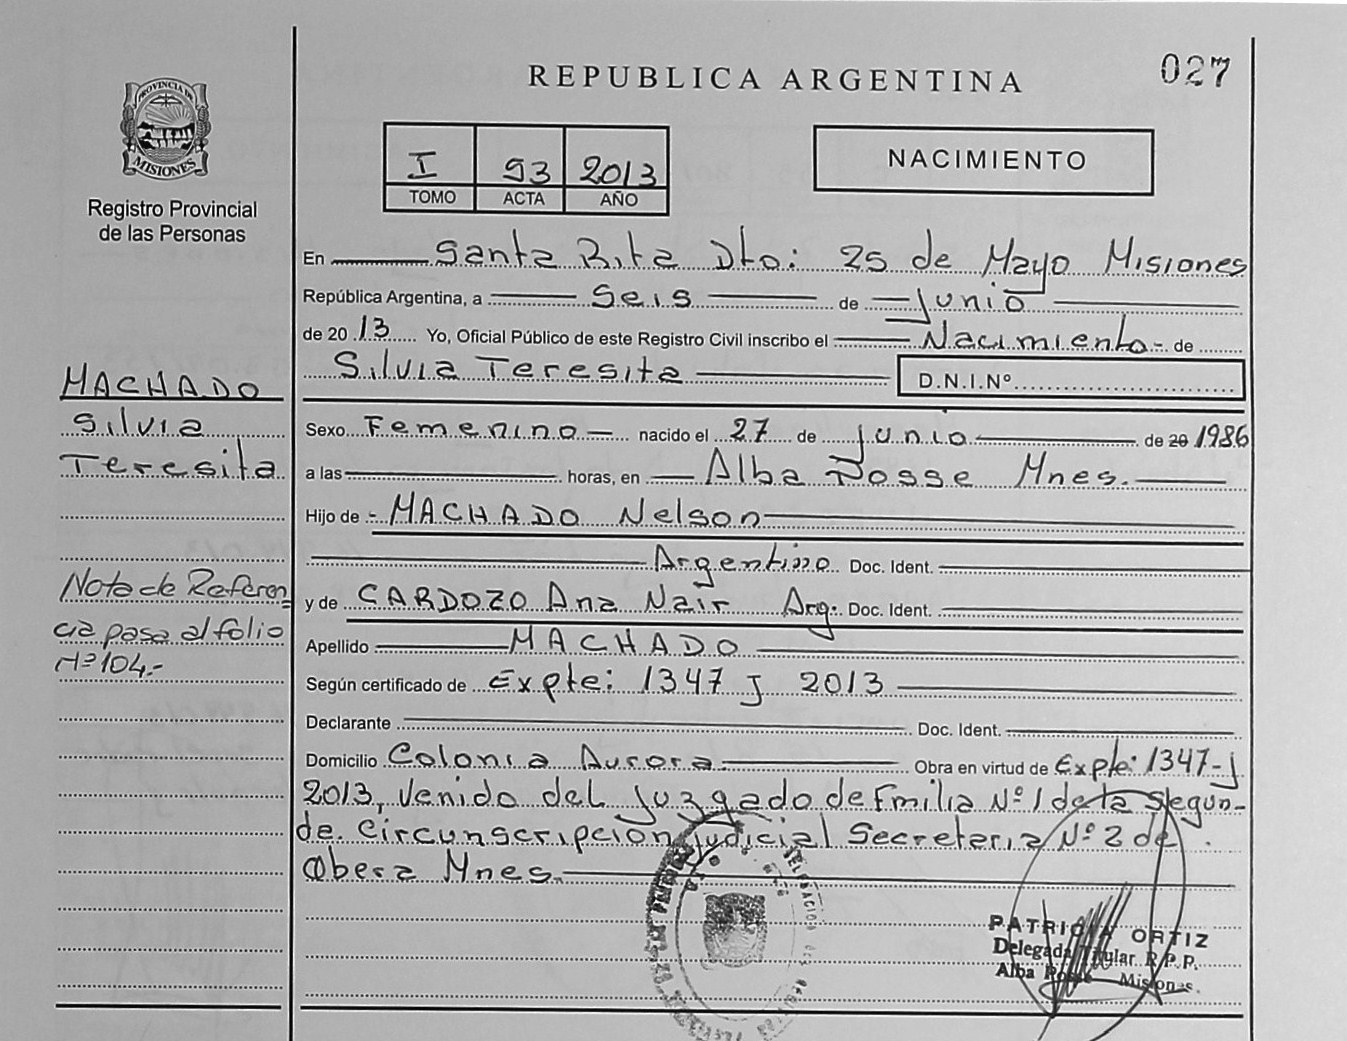 027
REPUBLICA ARGENTINA
PROVINCIA DE
MISIONES
Registro Provincial
de las Personas
I 93 2013
TOMO ACTA AÑO
NACIMIENTO
En Santa Rita Dto: 25 de Mayo Misiones
República Argentina, a Seis de Junio
de 20 13 Yo, Oficial Público de este Registro Civil inscribo el Nacimiento- de
Silvia Teresita D.N.I.Nº
MACHADO
Silvia
Teresita
Sexo Femenino nacido el 27 de Junio de 20 1986
a las horas, en Alba Posse Mnes.
Hijo de - MACHADO Nelson
Argentino Doc. Ident.
y de CARDOZO Ana Nair Arg. Doc. Ident.
Nota de Referen
cia pasa al folio
Nº 104.-
Apellido MACHADO
Según certificado de Expte: 1347 J 2013
Declarante Doc. Ident.
Domicilio Colonia Aurora Obra en virtud de Expte: 1347-J
2013, Venido del Juzgado de Fmilia Nº 1 de la Segun-
da Circunscripcion Judicial Secretaria Nº 2 de
Obera Mnes.-
PATRICIA ORTIZ
Delegada Titular R.P.P.
Alba Posse Misiones.